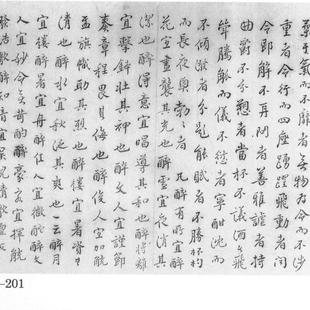 於氣而不靡者無物為令而不涉
重者令行而四座踴躍飛動者聞
令即解不再問者善雅謔者持
曲爵不分愬者當杯不議酒者飛
斝騰觚而儀不愆者寧酣沉而
不傾潑者分題能賦者不勝杯杓
而長夜興勃勃者凡醉有所宜醉
花宜晝襲其光也醉雪宜夜消其
潔也醉得意宜唱導其和也醉將離
宜擊鉢壯其神也醉文人宜謹節
奏章程畏其侮也醉俊人宜加觥
盂旗幟助其烈也醉樓宜暑資其
清也醉水宜秋泛其爽也一云醉月
宜樓醉暑宜舟醉佳人宜微酡醉文
人宜妙令無苛酌醉豪客宜揮觥
發浩歌醉知音宜吳兒清歌檀
-201